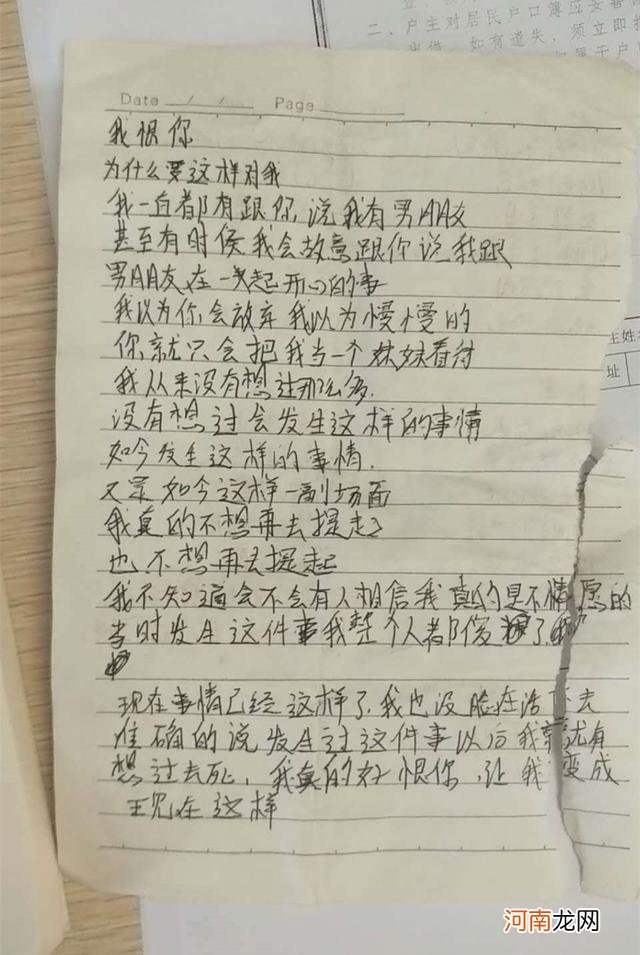 二、户主对居民户口簿应妥善
出借。如有遗失，须立即
Date / / Page
我恨你
为什么要这样对我
我一直都有跟你说我有男朋友
甚至有时候我会故意跟你说我跟
男朋友在一起开心的事
我以为你会放弃我以为慢慢的
你就只会把我当一个妹妹看待
我从来没有想过那么多.
没有想过会发生这样的事情
如今发生这样的事情.
又是如今这样一副场面
我真的不想再去提起
也不想再去提起
我不知道会不会有人相信我真的是不情愿的
当时发生这件事我整个人都傻了
现在事情已经这样了.我也没脸在活下去
准确的说发生过这件事以后我就有
想过去死，我真的好恨你，让我变成
现在这样
主姓
址
河南龙网